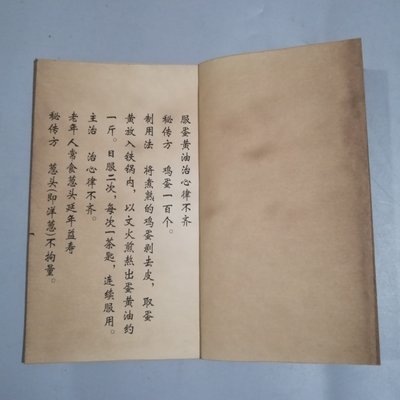 服蛋黄油治心律不齐
秘传方 鸡蛋一百个。
制用法 将煮熟的鸡蛋剥去皮，取蛋
黄放入铁锅内，以文火煎熬出蛋黄油约
一斤。日服二次，每次一茶匙，连续服用。
主治 治心律不齐。
老年人常食葱头延年益寿
秘传方 葱头（即洋葱）不拘量。